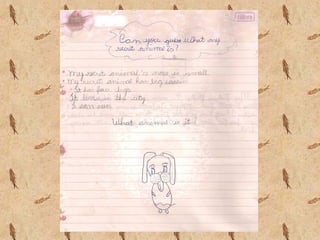 Can you guess what my
secret animal is?
My secret animal's nose is small
My secret animal has big ears
It has four legs
It lives in the city
It can
What animal is it?